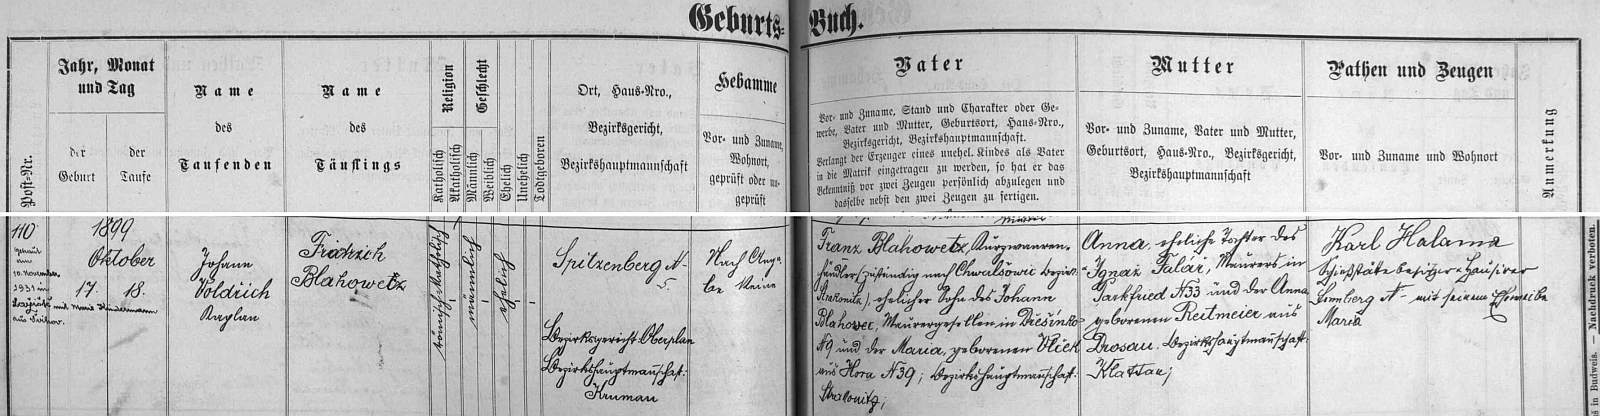 Geburts-Buch.
Post-Nr.
Jahr, Monat
und Tag
der
Geburt
der
Taufe
Name
des
Taufenden
Name
des
Täuflings
Religion
Katholisch
Akatholisch
Geschlecht
Männlich
Weiblich
Ehelich
Unehelich
Todtgeboren
Ort, Haus-Nro.,
Bezirksgericht,
Bezirkshauptmannschaft
Hebamme
Vor- und Zuname,
Wohnort,
geprüft oder un-
geprüft
Vater
Vor- und Zuname, Stand und Charakter oder Ge-
werbe, Vater und Mutter, Geburtsort, Haus-Nro.,
Bezirksgericht, Bezirkshauptmannschaft.
Verlangt der Erzeuger eines unehel. Kindes als Vater
in die Matrik eingetragen zu werden, so hat er das
Bekenntniß vor zwei Zeugen persönlich abzulegen und
dasselbe nebst den zwei Zeugen zu fertigen.
Mutter
Vor- und Zuname, Vater und Mutter,
Geburtsort, Haus-Nro., Bezirksgericht,
Bezirkshauptmannschaft
Pathen und Zeugen
Vor- und Zuname und Wohnort
Anmerkung
110
1899
Oktober
17. 18.
getraut
am
10. November
1931 in
mit Marie Hindermann
aus
Johann
Voldřich
Kaplan
Friedrich
Blahowetz
römisch-katholisch
männlich
ehelich
Spitzenberg N-
5.
Bezirksgericht Oberplan
Bezirkshauptmannschaft:
Krumau
Nach Anga-
be keine
Franz Blahowetz, Kurzwaaren-
händler (zuständig nach Chwalšowic Bezirk.
Strakonitz), ehelicher Sohn des Johann
Blahowec, Maurergesellen in Drešínko
N9 und der Maria, geborenen Vlček
aus Hora N39; Bezirkshauptmannschaft:
Strakonitz;
Anna, eheliche Tochter des
Ignaz Talář, Maurers in
Parkfried N33 und der Anna
geborenen Reitmeier aus
Drosau. Bezirkshauptmannschaft:
Klattau;
Karl Halama
Schießstättebesitzer Hausirer
N- mit seinem Eheweibe
Maria
in Budweis. — Nachdruck verboten.